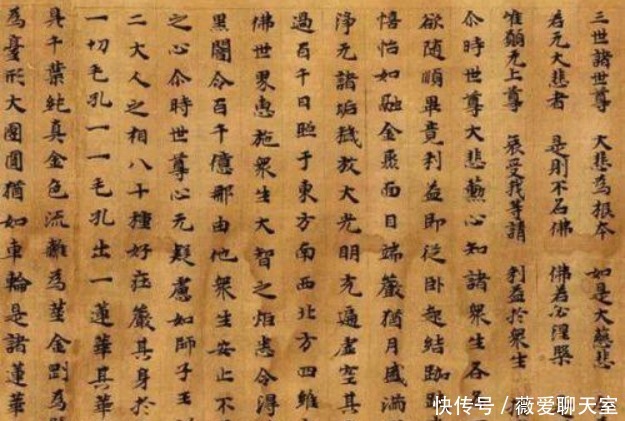 三世諸世尊 大悲為根本 如是大慈悲
若无大悲者 是則不名佛 佛若必涅槃
惟願无上尊 哀受我等請 利益於衆生
尒時世尊大悲薰心知諸衆生各
欲随順畢竟利益即從卧起結跏
憘怡如融金聚面目端嚴猶月盛滿
淨无諸垢穢放大光明充遍虛空其
過百千日照于東方南西北方四維
佛世界惠施衆生大智之炬悉令得
黑闇令百千億那由他衆生安止不
之心尒時世尊心无疑慮如師子王
二大人之相八十種好莊嚴其身於
一切毛孔一一毛孔出一蓮華其華
具千葉純真金色流離為莖金剛為
為臺形大團圓猶如車輪是諸蓮華
快传号/薇爱聊天室